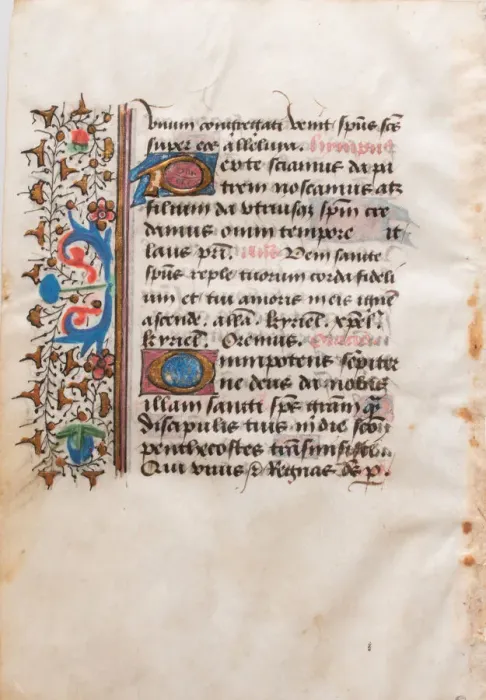 vnum congregati venit spūs scs
super eos alleluya.
er te sciamus da pa
trem noscamus atz
filium da vtriusqz spm cre
damus omni tempore it
laus pri. Veni sancte
spūs reple tuorum corda fideli
um et tui amoris in eis ignē
ascende. alla. kyriel. xpel
kyriel. Oremus.
Omnipotens sēpiter
ne deus da nobis
illam sancti sps gram
discipulis tuis in die
penthecostes transmisisti
Qui viuis Regnas ds p.